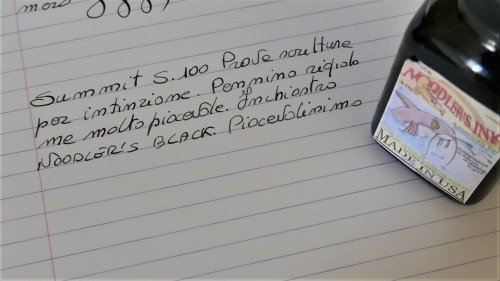 Summit S.100 Prove scritture
per intinzione. Pennino rigido
ma molto piacevole. Inchiostro
NOODLER'S BLACK. Piacevolissimo
NOODLER'S INK
MADE IN USA